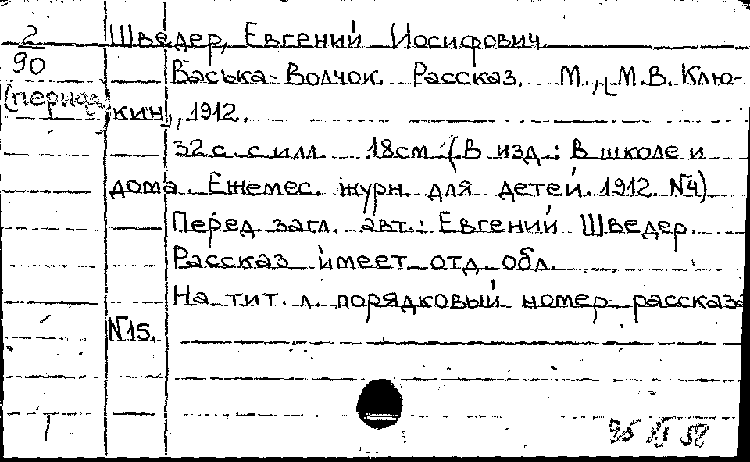 2 Шведер, Евгений Иосифович
90 Васька-Волчок. Рассказ. М., [М.В. Клю-
(период) кин], 1912.
32 с. с илл. 18см. (В изд.: В школе и
дома. Ежемес. журн. для детей. 1912. №4)
Перед загл. авт.: Евгений Шведер.
Рассказ имеет отд. обл.
На тит. л. порядковый номер рассказа
№15.